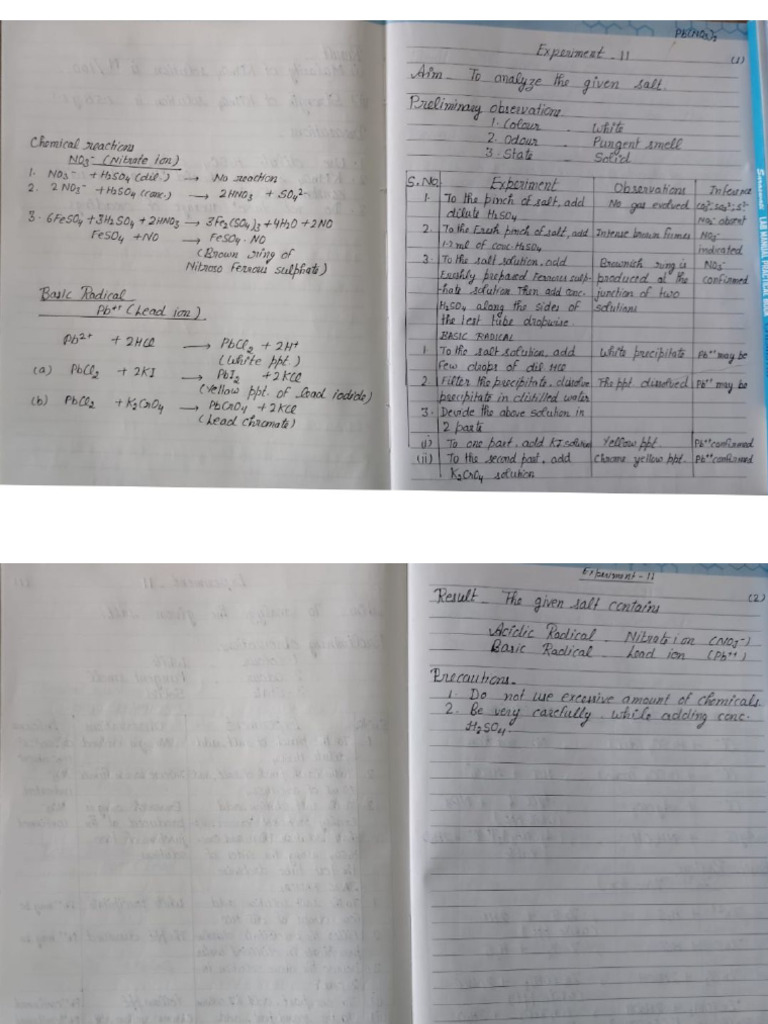 Chemical reactions
NO3⁻ (Nitrate ion)
1. NO3⁻ + H2SO4 (dil.) → No reaction
2. 2NO3⁻ + H2SO4 (conc.) → 2HNO3 + SO4²⁻
3. 6FeSO4 + 3H2SO4 + 2HNO3 → 3Fe2(SO4)3 + 4H2O + 2NO
FeSO4 + NO → FeSO4·NO
(Brown ring of
Nitroso Ferrous sulphate)
Basic Radical
Pb⁺⁺ (Lead ion)
Pb²⁺ + 2HCl → PbCl2 + 2H⁺
(White ppt.)
(a) PbCl2 + 2KI → PbI2 + 2KCl
(Yellow ppt. of lead iodide)
(b) PbCl2 + K2CrO4 → PbCrO4 + 2KCl
(Lead chromate)
Pb(NO3)2
Experiment - 11
(1)
Aim - To analyze the given salt.
Preliminary observations.
1. Colour - White
2. Odour - Pungent smell
3. State - Solid
S.No. Experiment Observations Inference
1. To the pinch of salt, add No gas evolved CO3²⁻, SO3²⁻, S²⁻
dilute H2SO4 NO2⁻ absent
2. To the fresh pinch of salt, add Intense brown fumes NO3⁻
1-2 ml of conc. H2SO4 indicated
3. To the salt solution, add Brownish ring is NO3⁻
freshly prepared Ferrous sulp- produced at the confirmed
hate solution. Then add conc. junction of two
H2SO4 along the sides of solutions
the test tube dropwise
BASIC RADICAL
1. To the salt solution, add White precipitate Pb⁺⁺ may be
few drops of dil. HCl
2. Filter the precipitate, dissolve The ppt dissolved Pb⁺⁺ may be
precipitate in distilled water
3. Devide the above solution in
2 parts
(i) To one part, add KI solution Yellow ppt. Pb⁺⁺ confirmed
(ii) To the second part, add Chrome yellow ppt. Pb⁺⁺ confirmed
K2CrO4 solution
LAB MANUAL PRACTICAL WORK
Experiment - 11
(2)
Result - The given salt contains
Acidic Radical - Nitrate ion (NO3⁻)
Basic Radical - Lead ion (Pb⁺⁺)
Precautions.
1. Do not use excessive amount of chemicals.
2. Be very carefully while adding conc.
H2SO4.